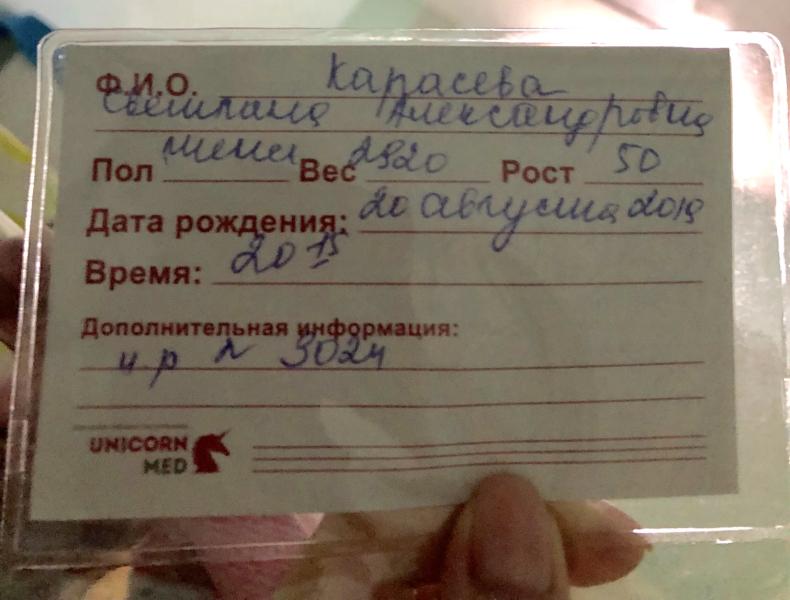 Ф.И.О. Карасева
Светлана Александровна
Пол женск Вес 2920 Рост 50
Дата рождения: 20 августа 2019
Время: 20 15
Дополнительная информация:
и.р № 3024
UNICORN
MED